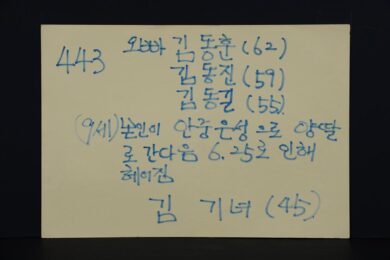 443 오빠 김동훈 (62)
김동진 (59)
김동길 (55)
(9세) 본인이 안중은성으로 양딸
로 간다음 6.25로 인해
헤어짐
김 기녀 (45)